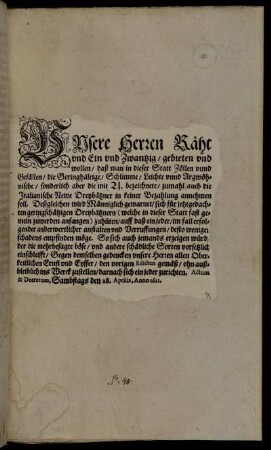 Vnsere Herren Räht
vnd Ein vnd Zwantzig / gebieten vnd
wollen / daß man in dieser Statt Zöllen vnnd
Gefällen / die Geringhältige / Schlimme / Leichte vnnd Argwöh-
nische / sonderlich aber die mit A. bezeichnete / zumahl auch die
Italianische Newe Dreybätzner in keiner Bezahlung annehmen
soll. Deßgleichen wird Männiglich gewarnet / sich für jetztgedach-
ten geringschätzigen Dreybätznern (welche in dieser Statt fast ge-
mein zuwerden anfangen) zuhüten: auff daß ein jeder / im fall erfol-
gender anderwertlicher anstalten vnd Verruffungen / desto weniger
schadens empfinden möge. So sich auch jemands erzeigen würde /
der die mehrbesagte böse / vnd andere schädliche Sorten vorsetzlich
einschleifft / Gegen demselben gedencken vnsere Herren allen Ober-
keitlichen Ernst vnd Eyffer / den vorigen Edicten gemäß / ohn auß-
bleiblich ins Werck zustellen / darnach sich ein jeder zurichten. Actum
& Decretum, Sambstags den 18. Aprilis, Anno 1612.
N°. 40.